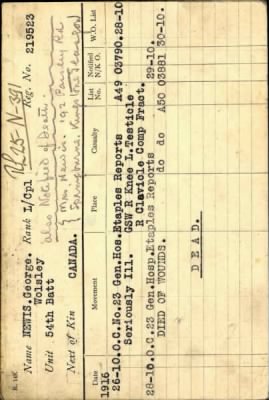 R.14K.
R425-N-391
Name NEWIS, George. Rank L/Cpl Reg. No. 219523
Wolsley
Unit 54th Batt
also Notified of Death.
Next of Kin CANADA.
Mrs. Newis. 192 Paisley Rd
Springburne. Kingston
Date Movement Place Casualty List No. Notified N/K O. W.O. List
1916
26-10. O.C. No.23 Gen.Hos. Etaples Reports A49 03790. 28-10
Seriously Ill. GSW R Knee L. Testicle
R Clavicle Comp Fract.
28-10. O.C. 23 Gen.Hosp. Etaples Reports 29-10.
DIED OF WOUNDS. do do A50 03881 30-10
D E A D.